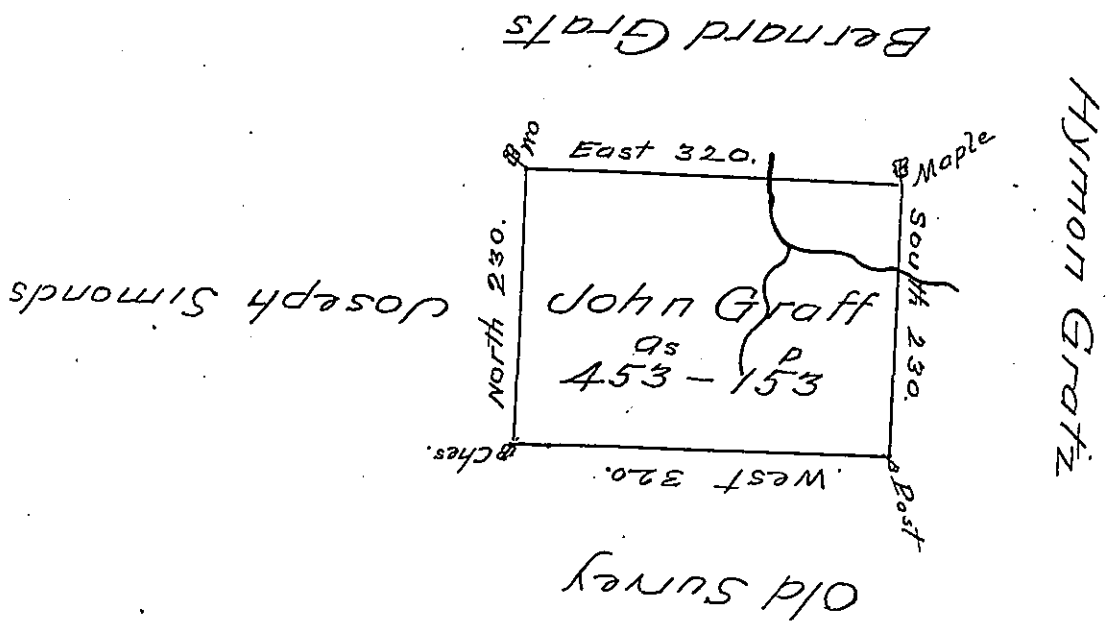 Bernard Grats
Hymon Gratz
WO
East 320.
Maple
North 230.
South 230.
Joseph Simonds
John Graff
as p
453 - 153
Ches.
West 320.
Post
Old Survey